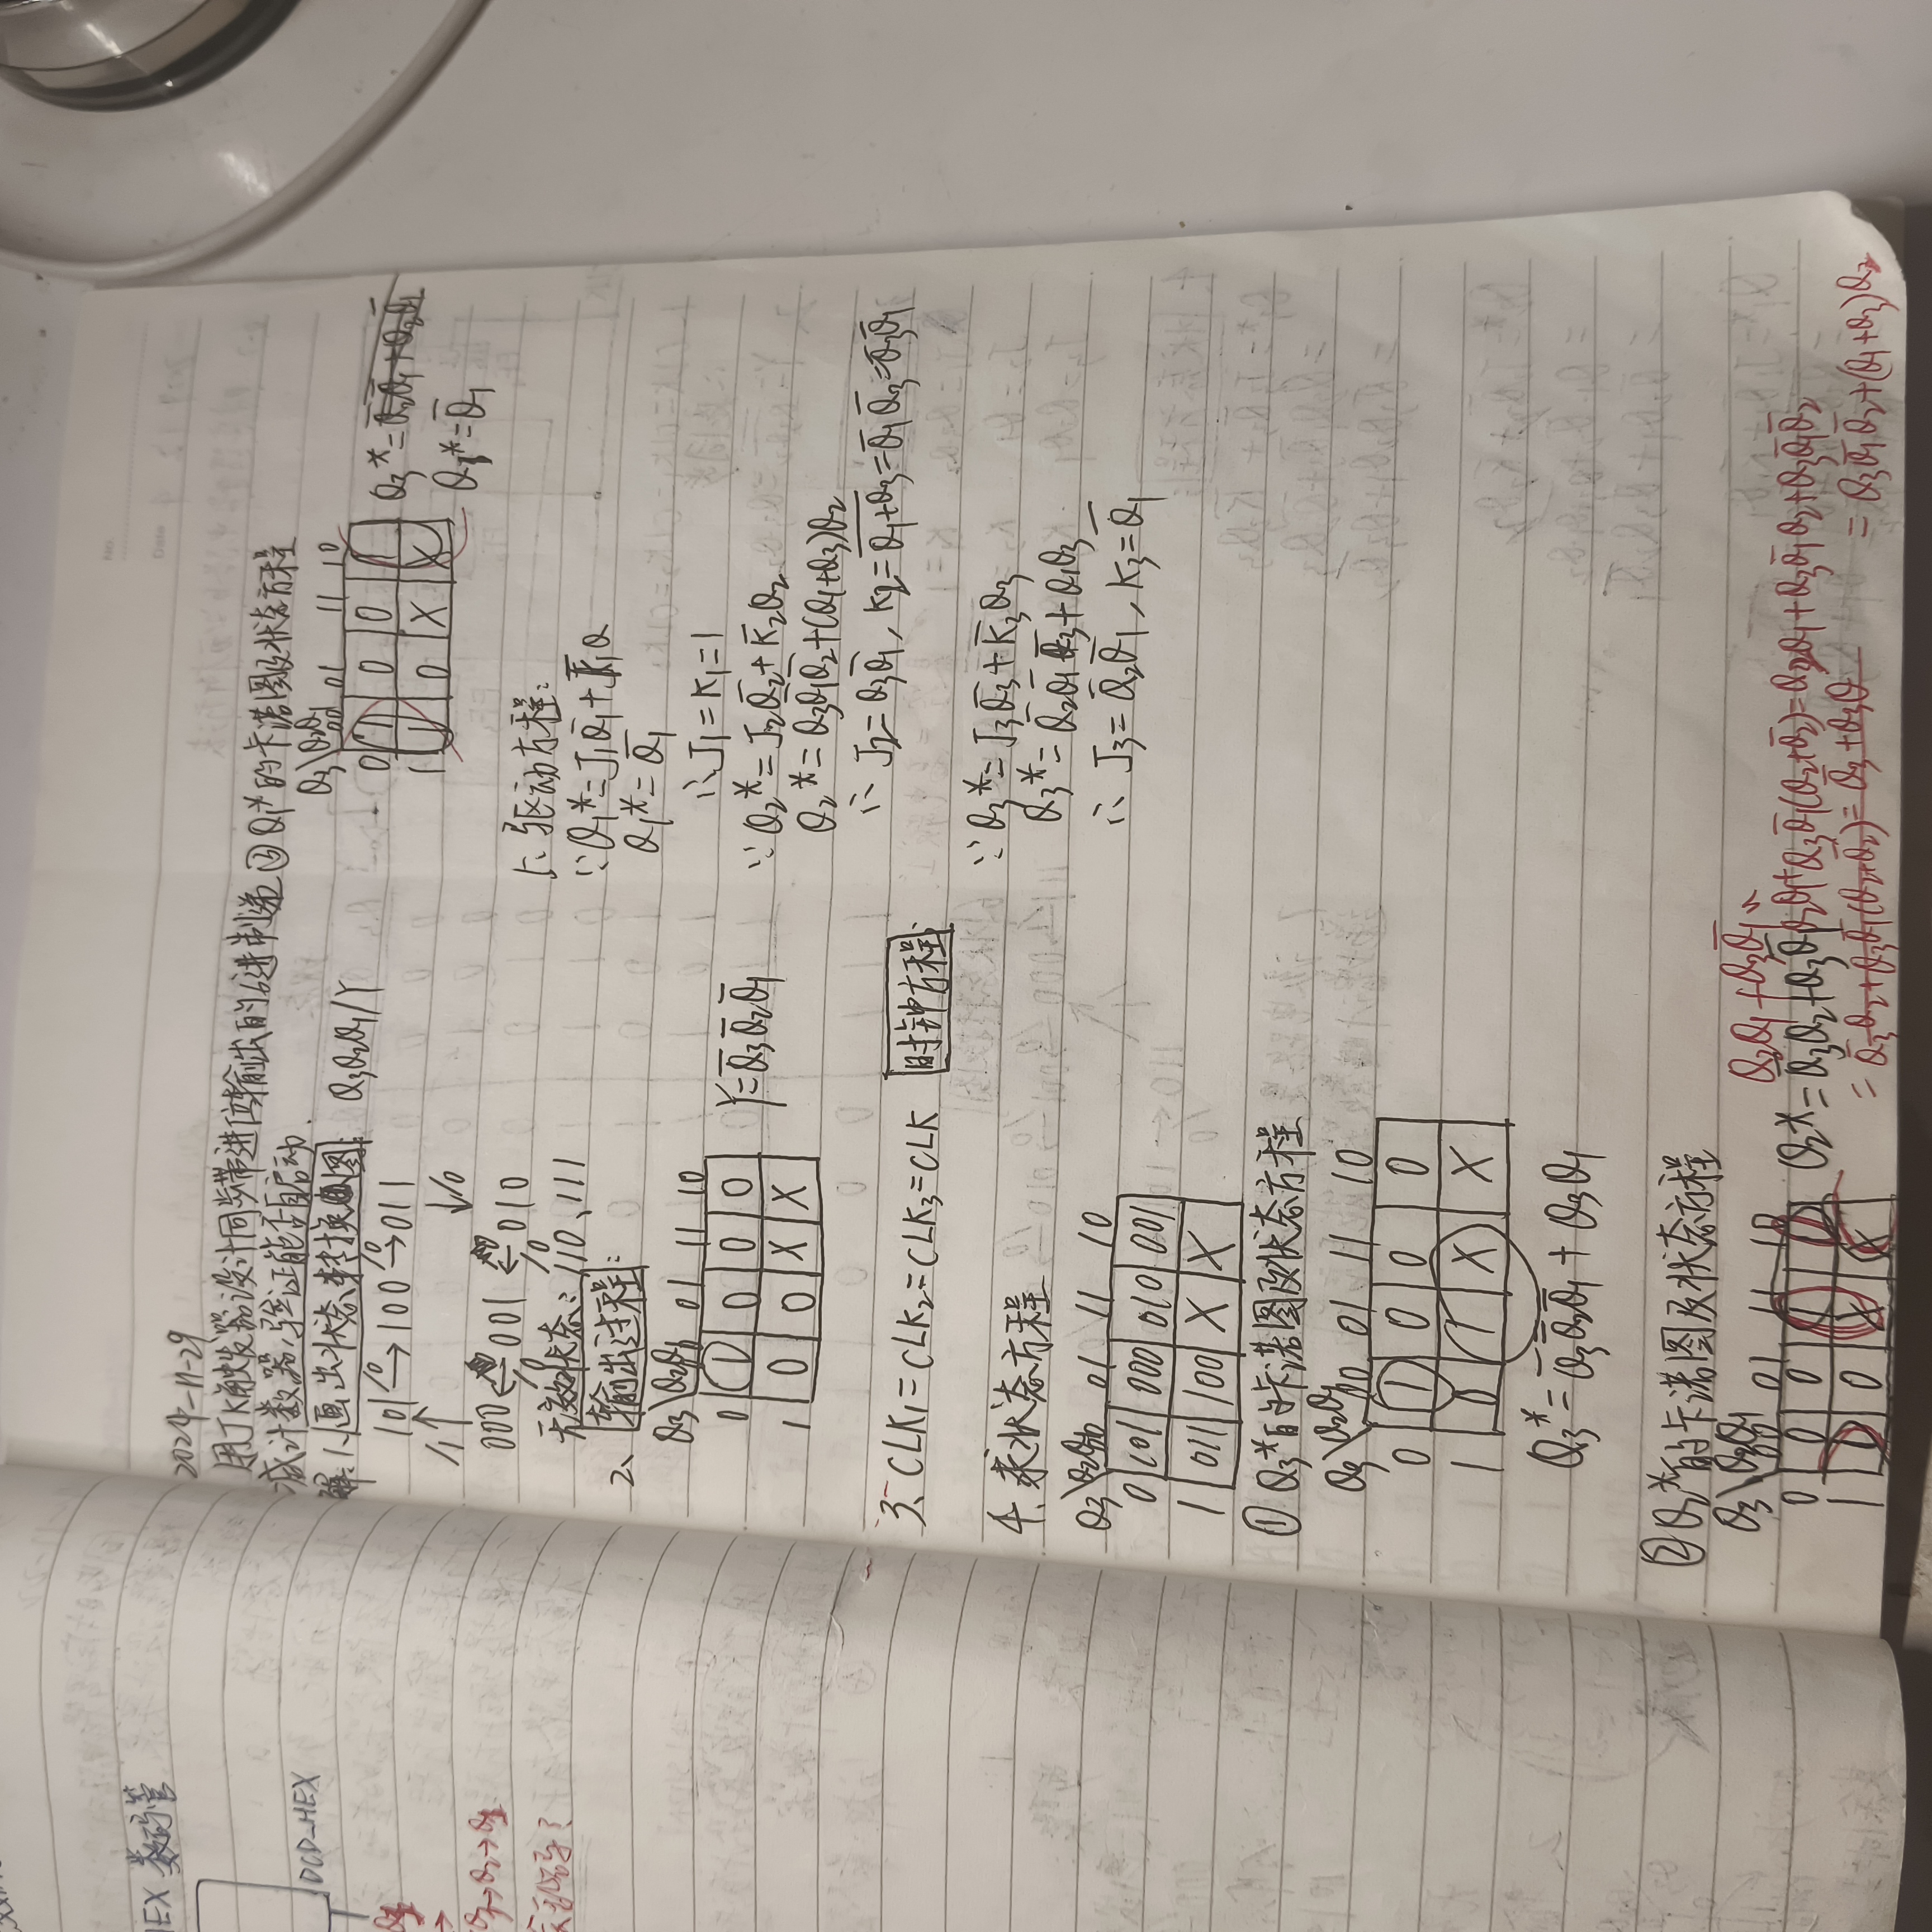 HEX 数码管
DCD_HEX
2024-11-29
用JK触发器设计同步带进位输出的6进制递
减计数器,验证能否自启动.
解:1、画出状态转换图: Q₃Q₂Q₁/Y
101 /0→ 100 /0→ 011
/1↑ ↓/0
000 ←/0 001 ←/0 010
无效状态:110、111
2、输出过程:
Q₃\Q₂Q₁ 00 01 11 10
0 1 0 0 0
1 0 0 X X
Y=Q̅₃Q̅₂Q̅₁
3、CLK₁=CLK₂=CLK₃=CLK 时钟方程:
4、求状态方程
Q₃\Q₂Q₁ 00 01 11 10
0 101 000 010 001
1 011 100 X X
① Q₃*的卡诺图及状态方程
Q₃\Q₂Q₁ 00 01 11 10
0 1 0 0 0
1 0 1 X X
Q₃*=Q̅₃Q̅₂Q̅₁+Q₃Q₁
② Q₂*的卡诺图及状态方程
Q₃\Q₂Q₁ 00 01 11 10
0 0 0 1
1 1 0 X X
Q₂Q₁+Q₃Q̅₁
Q₂*=Q̅₃Q₂+Q₃Q̅₁ Q₂Q₁+Q₃Q̅₁(Q₂+Q̅₂)=Q₂Q₁+Q₃Q̅₁Q₂+Q₃Q̅₁Q̅₂
=Q̅₃Q₂+Q₃Q̅₁(Q₂+Q̅₂)=Q̅₃+Q₃Q
=Q₃Q̅₁Q̅₂+(Q₁+Q₃)Q₂
③ Q₁*的卡诺图及状态方程
Q₃\Q₂Q₁ 00 01 11 10
0 1 0 0 1
1 1 0 X X
Q₃*=Q̅₂Q̅₁+Q₂Q̅₁
Q₁*=Q̅₁
5、驱动方程:
∵Q₁*=J₁Q̅₁+K̅₁Q
Q₁*=Q̅₁
∴J₁=K₁=1
∵Q₂*=J₂Q̅₂+K̅₂Q₂
Q₂*=Q₃Q̅₁Q̅₂+(Q₁+Q₃)Q₂
∴J₂=Q₃Q̅₁, K₂=\overline{Q₁+Q₃}=Q̅₁Q̅₃=Q̅₃Q̅₁
∵Q₃*=J₃Q̅₃+K̅₃Q₃
Q₃*=Q̅₂Q̅₁Q̅₃+Q₁Q₃
∴J₃=Q̅₂Q̅₁, K₃=Q̅₁